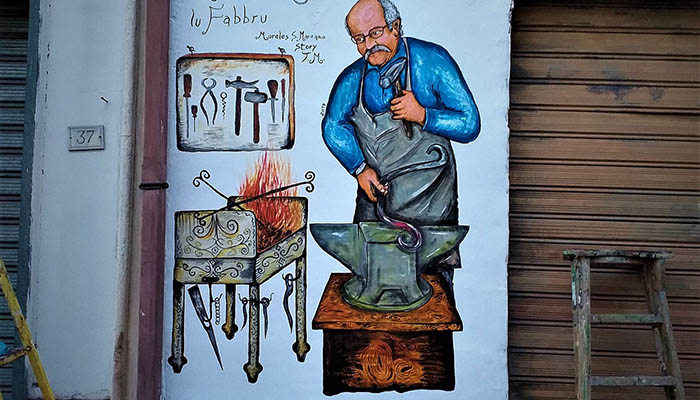 lu Fabbru
Murales S. Morcano
Story
T.M.
37